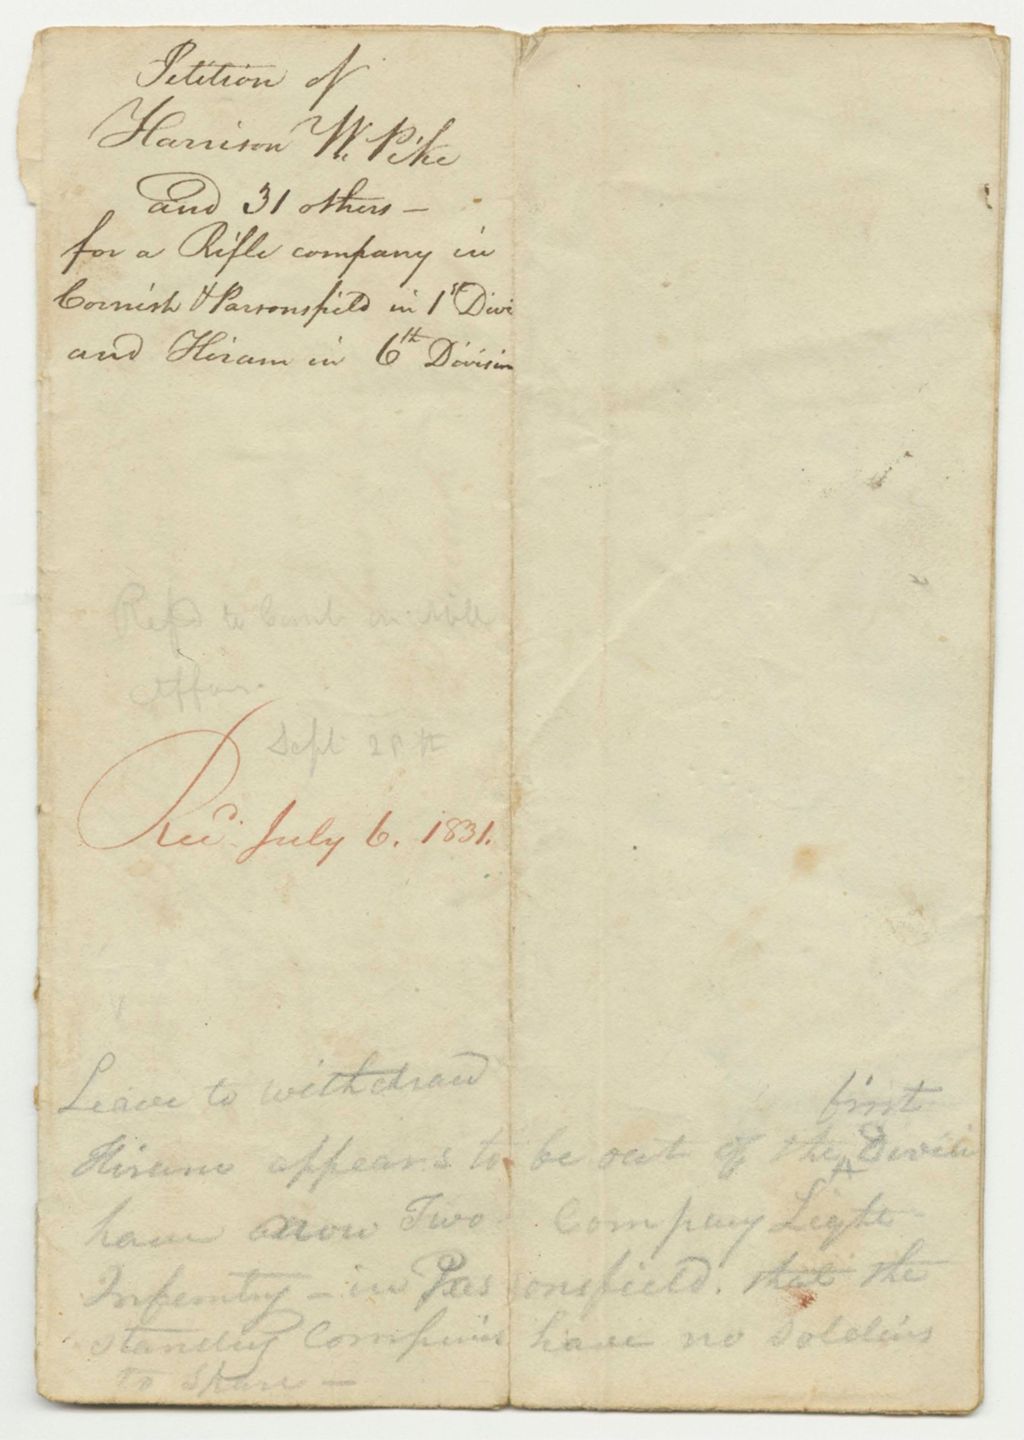 Petition of
Harrison W. Pike
and 31 others —
for a Rifle company in
Cornish & Parsonsfield in 1st Divi
and Hiram in 6th Division
Refd to Comt on Mill
Affairs
Sept 28th
Recd. July 6. 1831.
Leave to withdraw
first
Hiram appears to be out of the Divisi
have now Two Company Light
Infentry — in Parsonsfield. that the
standing Companies have no Soldiers
to Spare —